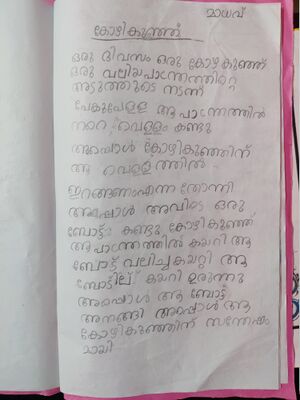 മാധവ്
കോഴികുഞ്ഞ്
ഒരു ദിവസം ഒരു കോഴികുഞ്ഞ്
ഒരു വലിയപാറത്തിന്റെ
അടുത്തുടെ നടന്ന്
ആ പാറത്തിൽ
നറെ വെള്ളം കണ്ടു
അപ്പൊൾ കോഴികുഞ്ഞിന്
ആ വെള്ളത്തിൽ
ഇറങ്ങണംഎന്ന തോന്നി
അപ്പൊൾ അവിടെ ഒരു
ബോട്ട് കണ്ടു, കോഴികുഞ്ഞ്
ആ പാത്രത്തിൽ കയറി ആ
ബോട്ട് വലിച്ചുകയറ്റി ആ
ബോട്ടില് കയറി ഇരുന്നു
അപ്പൊൾ ആ ബോട്ട്
അനങ്ങി അപ്പൊൾ ആ
കോഴികുഞ്ഞിന് സന്തേഷം
മായി